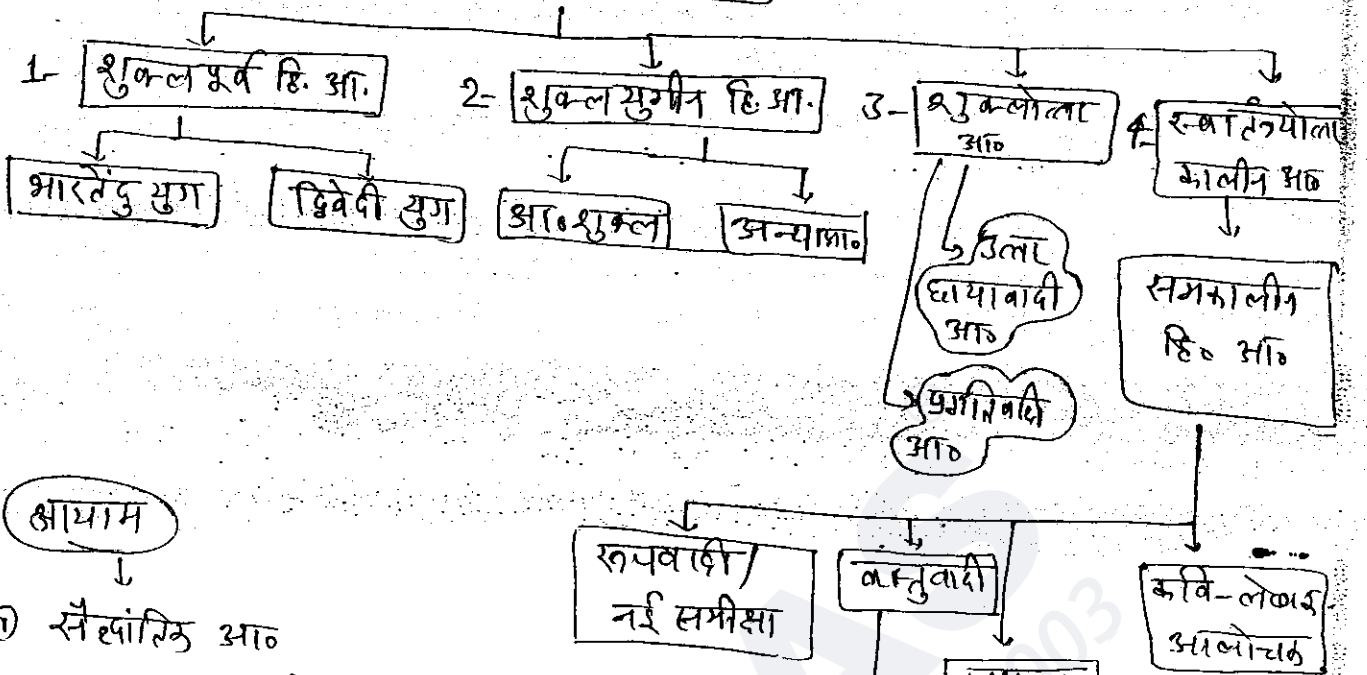 1- शुक्ल पूर्व हि. आ.
2- शुक्ल युगीन हि. आ.
3- शुक्लोत्तर
आ०
4- स्वातंत्र्योत्तर
कालीन आ०
भारतेंदु युग
द्विवेदी युग
आ० शुक्ल
अन्य आ०
उत्तर
छायावादी
आ०
प्रगतिवादी
आ०
समकालीन
हि० आ०
आयाम
सैद्धांतिक आ०
रूपवादी/
नई समीक्षा
वस्तुवादी
कवि-लेखक-
आलोचक